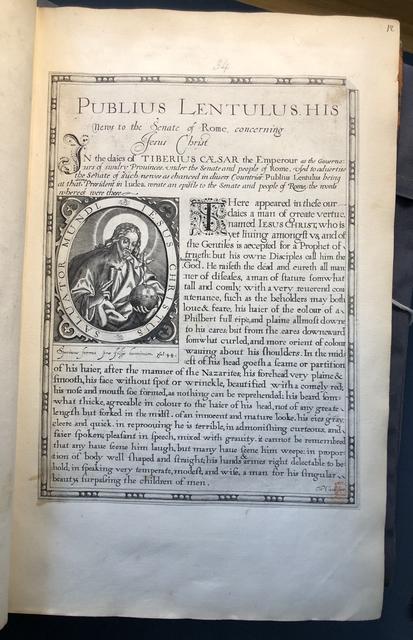 12
34
PUBLIUS LENTULUS, HIS
News to the Senate of Rome, concerning
Jesus Christ
IN the daies of TIBERIUS CÆSAR the Emperour as the Governo:
urs of sundry Provinces, under the Senate and people of Rome, used to advertise
the Senate of such newes as chaunced in divers Countries Publius Lentulus being
at that President in Iudea, wrote an epistle to the Senate and people of Rome, the words
whereof were these
SALVATOR MUNDI IESUS CHRISTUS
Speciosus forma
44
THere appeared in these our
daies a man of create vertue,
named IESUS CHRIST, who is
yet living amongst vs, and of
the Gentiles is accepted for a Prophet of
trueth: but his owne Disciples call him the
God. He raiseth the dead and cureth all man
ner of diseases, a man of stature somwhat
tall and comly, with a very reverend cou
ntenance, such as the beholders may both
loue & feare, his haier of the colour of a
Philbert full ripe, and plaine allmost downe
to his eares; but from the eares downward
somwhat curled, and more orient of colour
waving about his shoulders. In the mid
est of his head goeth a seame or partition
of his haier, after the manner of the Nazarites, his forehead very plaine &
smooth, his face without spot or wrinckle, beautified with a comely red;
his nose and mouth soe formed, as nothing can be reprehended; his beard som
what thicke, agreeable in colour to the haier of his head, not of any greate
length but forked in the midst. of an innocent and mature looke, his eies gray,
cleere and quick. in reprooving he is terrible, in admonishing curteous, and
faier spoken; pleasant in speech, mixed with gravity. it cannot be remembred
that any haue seene him laugh, but many haue seene him weepe: in propor
tion of body well shaped and straight; his hands & armes right delectable to be
hold, in speaking very temperate, modest, and wise, a man for his singular
beauty, surpassing the children of men.